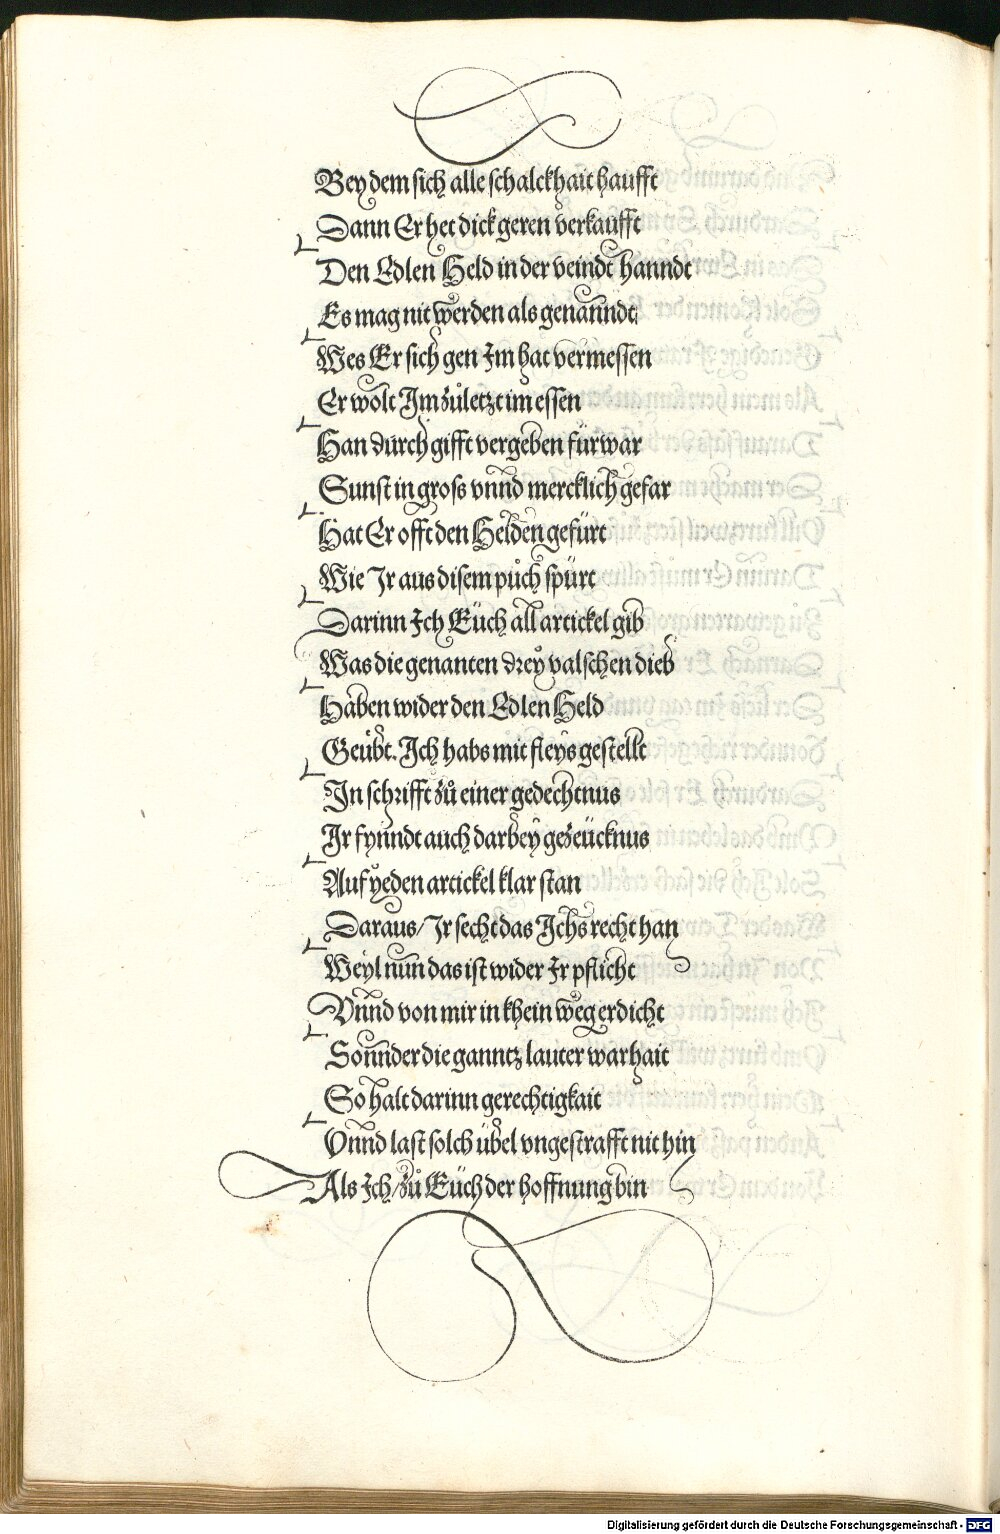 Bey dem sich alle schalckhait haufft
Dann Er het dick geren verkaufft
Den Edlen Held in der veindt hanndt
Es mag nit werden als genanndt
Wes Er sich gen Im hat vermessen
Er wolt Im zůletzt im essen
Han durch gifft vergeben fürwar
Sunst in gross vnnd mercklich gefar
Hat Er offt den Helden gefürt
Wie Ir aus disem půch spürt
Darinn Ich Eüch all artickel gib
Was die genanten drey valschen dieb
Haben wider den Edlen Held
Geübt. Ich habs mit fleys gestellt
In schrifft zů einer gedechtnus
Ir fynndt auch darbey gezeücknus
Auf yeden artickel klar stan
Daraus/ Ir secht das Ichs recht han
Weyl nun das ist wider Ir pflicht
Vnnd von mir in khein weg erdicht
Sonnder die ganntz lauter warhait
So halt darinn gerechtigkait
Vnnd last solch übel vngestrafft nit hin
Als Ich/ zů Eüch der hoffnung bin
Digitalisierung gefördert durch die Deutsche Forschungsgemeinschaft - DFG